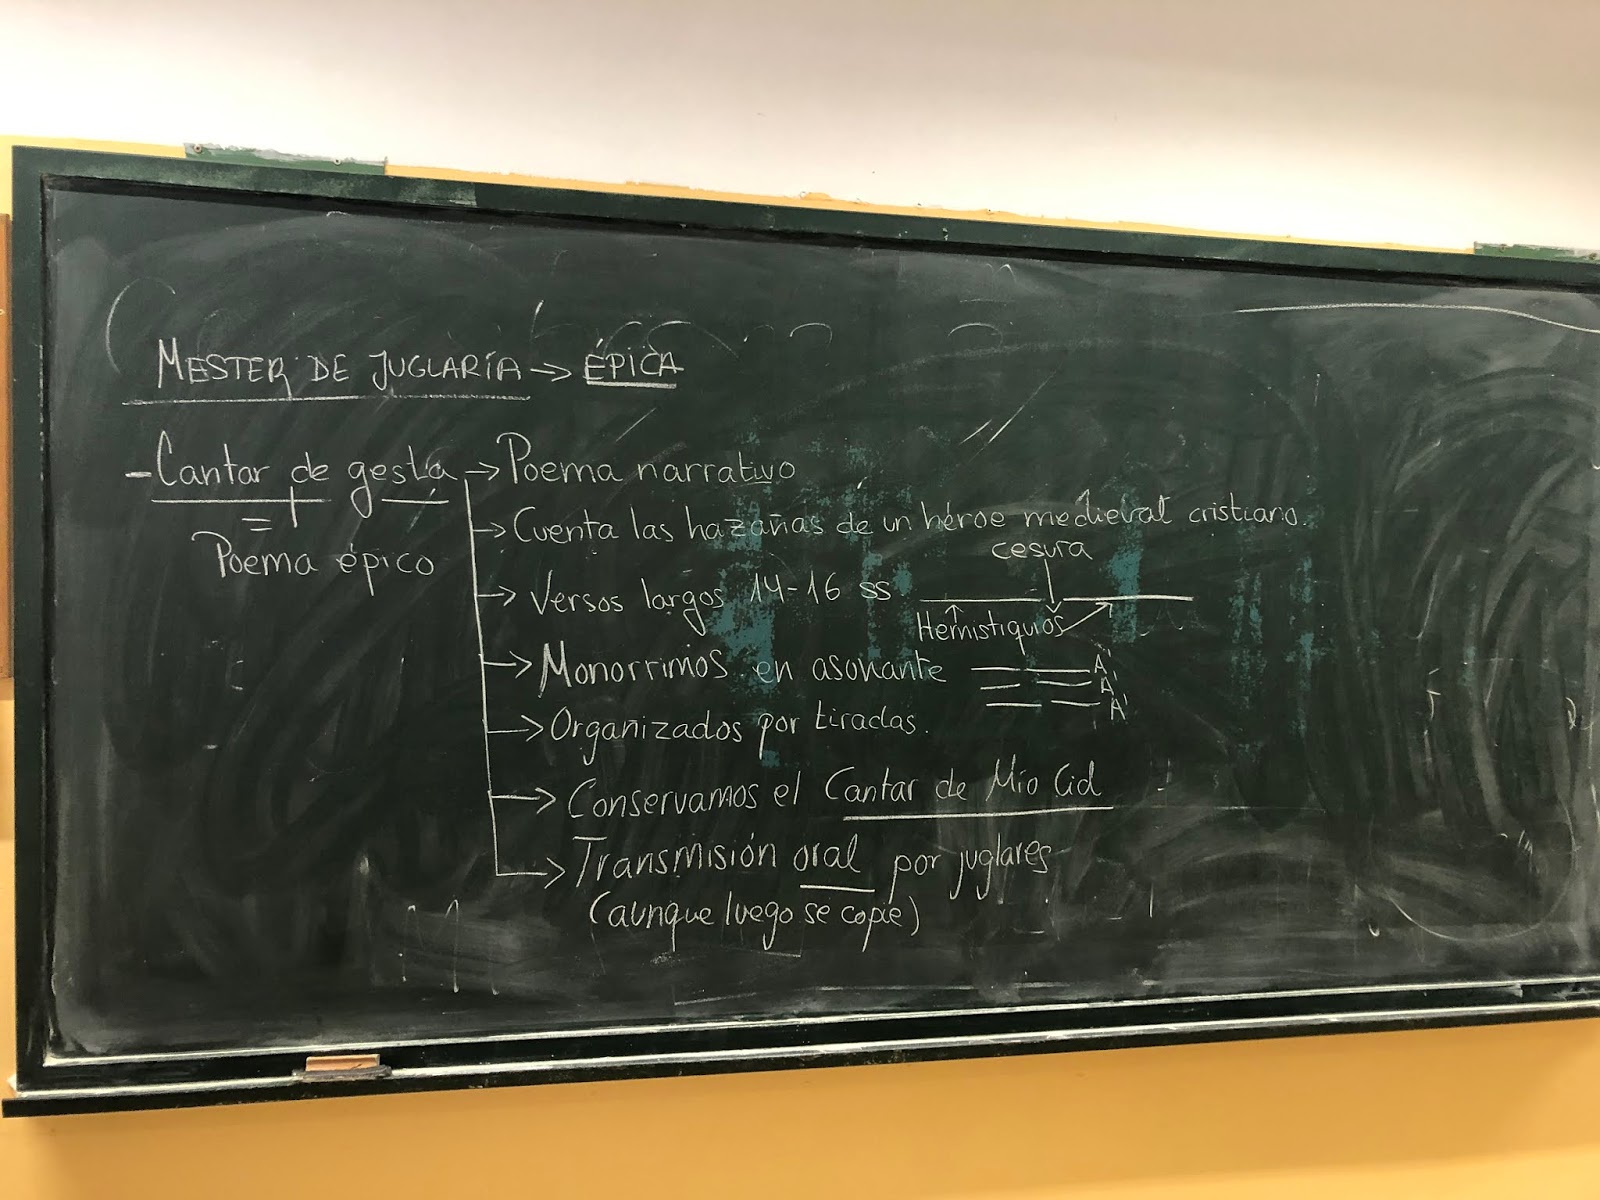 MESTER DE JUGLARÍA → ÉPICA
- Cantar de gesta → Poema narrativo
=
Poema épico
→ Cuenta las hazañas de un héroe medieval cristiano.
cesura
→ Versos largos 14-16 ss
Hemistiquios
→ Monorrimos en asonante
A
A
A
→ Organizados por tiradas.
→ Conservamos el Cantar de Mío Cid
→ Transmisión oral por juglares
(aunque luego se copie)